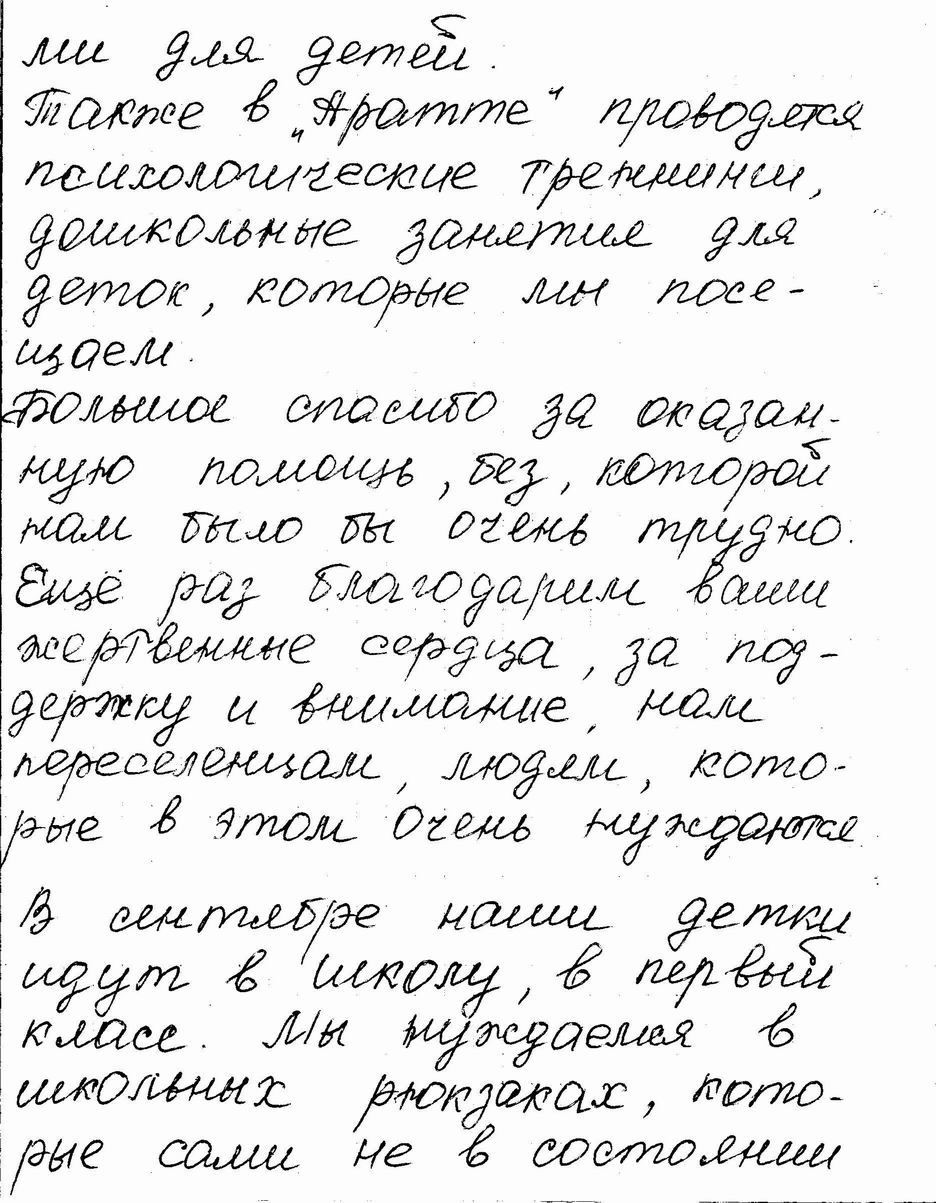 ми для детей.
Также в „Аратте" проводятся
психологические тренинги,
дошкольные занятия для
деток, которые мы посе-
щаем.
Большое спасибо за оказан-
ную помощь, без, которой
нам было бы очень трудно.
Ещё раз благодарим ваши
жертвенные сердца, за под-
держку и внимание, нам
переселенцам, людям, кото-
рые в этом очень нуждаются.
В сентябре наши детки
идут в школу, в первый
класс. Мы нуждаемся в
школьных рюкзаках, кото-
рые сами не в состоянии